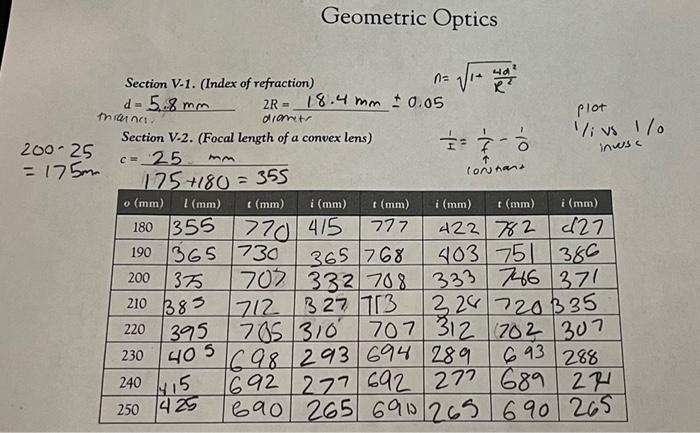 Geometric Optics
Section V-1. (Index of refraction)
n = √1 + 4d²/R²
d = 5.8 mm 2R = 18.4 mm ± 0.05
diometr
plot
1/i vs 1/o
Section V-2. (Focal length of a convex lens)
1/I = 1/f - 1/O
↑
constant
200-25
= 175m
c = 25 mm
175+180 = 355
o (mm) l (mm) t (mm) i (mm) t (mm) i (mm) t (mm) i (mm)
180 355 770 415 777 422 782 427
190 365 730 365 768 403 751 386
200 375 707 332 708 333 746 371
210 385 712 327 713 328 720 335
220 395 705 310 707 312 702 307
230 405 698 293 694 289 693 288
240 415 692 277 692 277 689 274
250 425 690 265 690 265 690 265